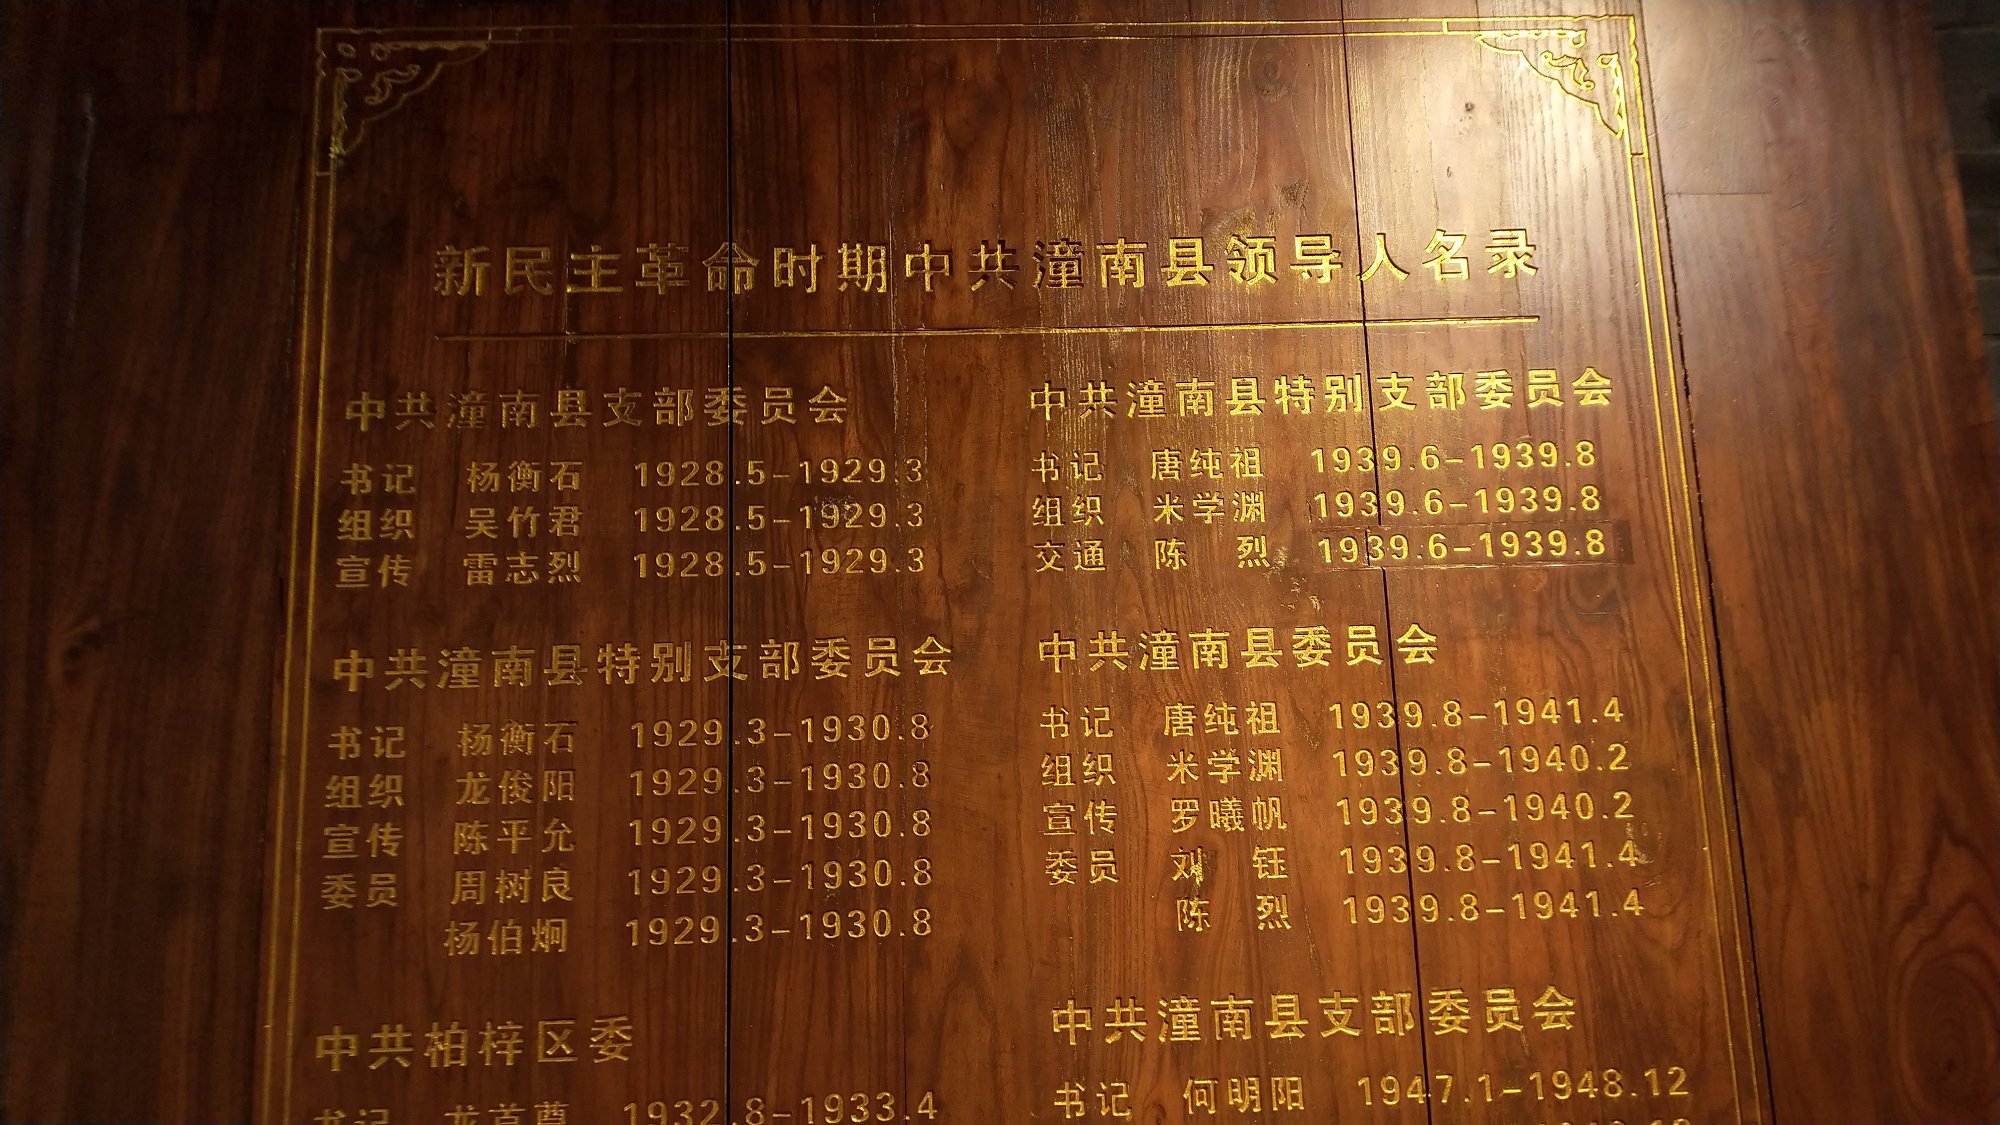 新民主革命时期中共潼南县领导人名录
中共潼南县支部委员会
书记 杨衡石 1928.5-1929.3
组织 吴竹君 1928.5-1929.3
宣传 雷志烈 1928.5-1929.3
中共潼南县特别支部委员会
书记 杨衡石 1929.3-1930.8
组织 龙俊阳 1929.3-1930.8
宣传 陈平允 1929.3-1930.8
委员 周树良 1929.3-1930.8
杨伯炯 1929.3-1930.8
中共柏梓区委
书记 龙 1932.8-1933.4
中共潼南县特别支部委员会
书记 唐纯祖 1939.6-1939.8
组织 米学渊 1939.6-1939.8
交通 陈 烈 1939.6-1939.8
中共潼南县委员会
书记 唐纯祖 1939.8-1941.4
组织 米学渊 1939.8-1940.2
宣传 罗曦帆 1939.8-1940.2
委员 刘 钰 1939.8-1941.4
陈 烈 1939.8-1941.4
中共潼南县支部委员会
书记 何明阳 1947.1-1948.12